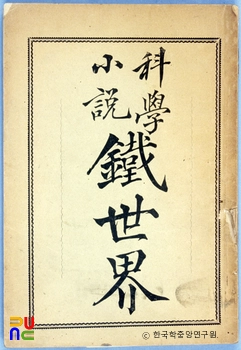 科學
小說
鐵世界
ⓒ 한국학중앙연구원